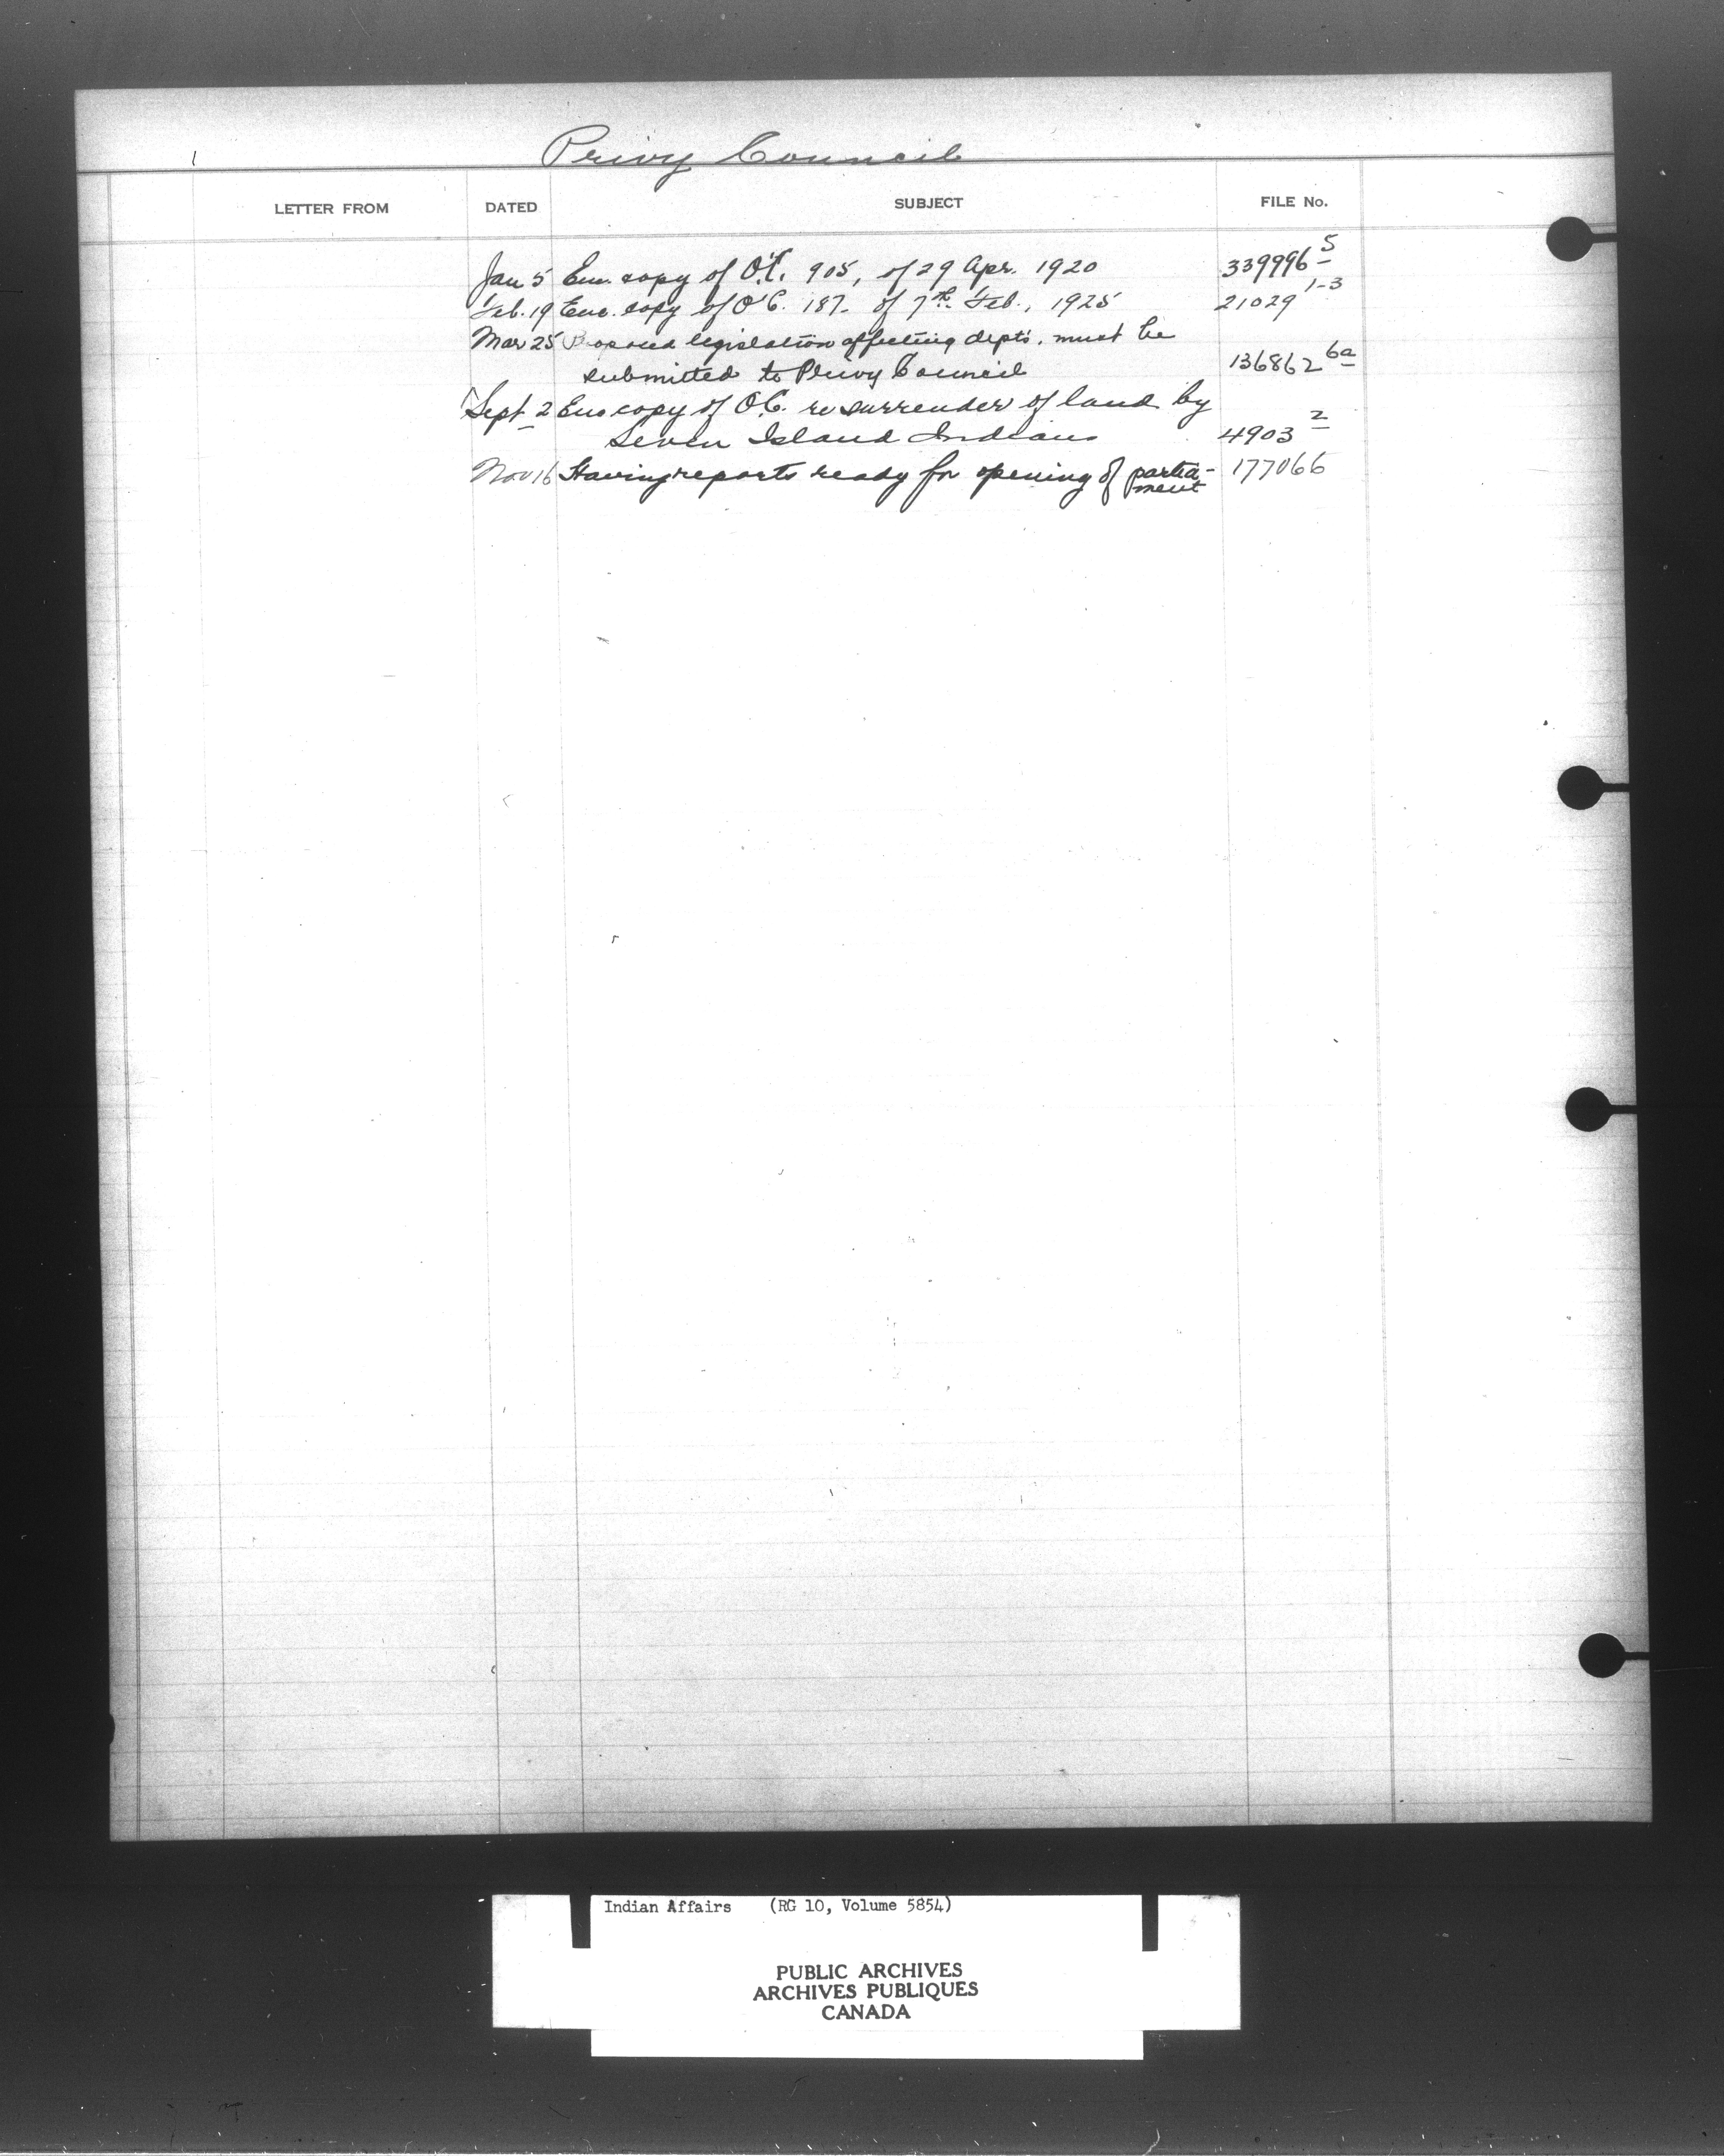 Privy Council
LETTER FROM DATED SUBJECT FILE No.
Jan 5 Enc. copy of O.C. 905, of 29 Apr. 1920 339996 5
Feb. 19 Enc. copy of O.C. 187. of 7th Feb., 1925 21029 1-3
Mar 25 Proposed legislation affecting depts. must be
submitted to Privy Council 136862 6a
Sept 2 Enc copy of O.C. re surrender of land by
Seven Island Indians 4903 2
Nov 16 Having reports ready for opening of parlia- 177066
ment
Indian Affairs (RG 10, Volume 5854)
PUBLIC ARCHIVES
ARCHIVES PUBLIQUES
CANADA